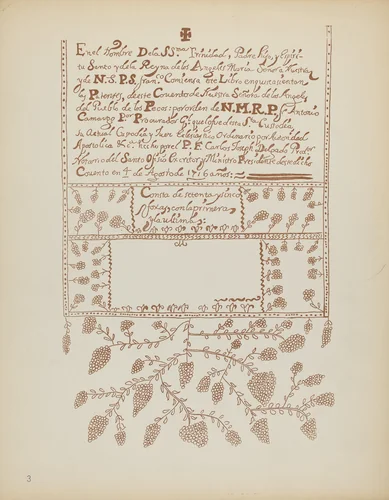 En el Nombre De la SS.ma Trinidad, Padre, Hijo, y Espiri-
tu Santo y de la Reyna de los Angeles Maria Señora Nuestra
y de N. S. P. S. Fran.co Comiensa este Libro en que se cuentan
las Ptensas, de este Convento de Nuestra Señora de los Angeles
del Pueblo de los Pecos: por orden de N. M. R. P. Fr. Antonio
Camargo P.or Procurador Gl. que fue desta S.ta Custodia
su Actual Custodio y Juez Eclesiastico Ordinario por Autoridad
Apostolica &.a hecho por el P. F. Carlos Joseph Delgado Pred.or
Notario del Santo Ofi.o Ex critor y Ministro Presidente de su dicho
Covento en 4 de Agosto de 1716 años:
Consta de setenta y sinco
fojas con la primera
y la ultima:
3